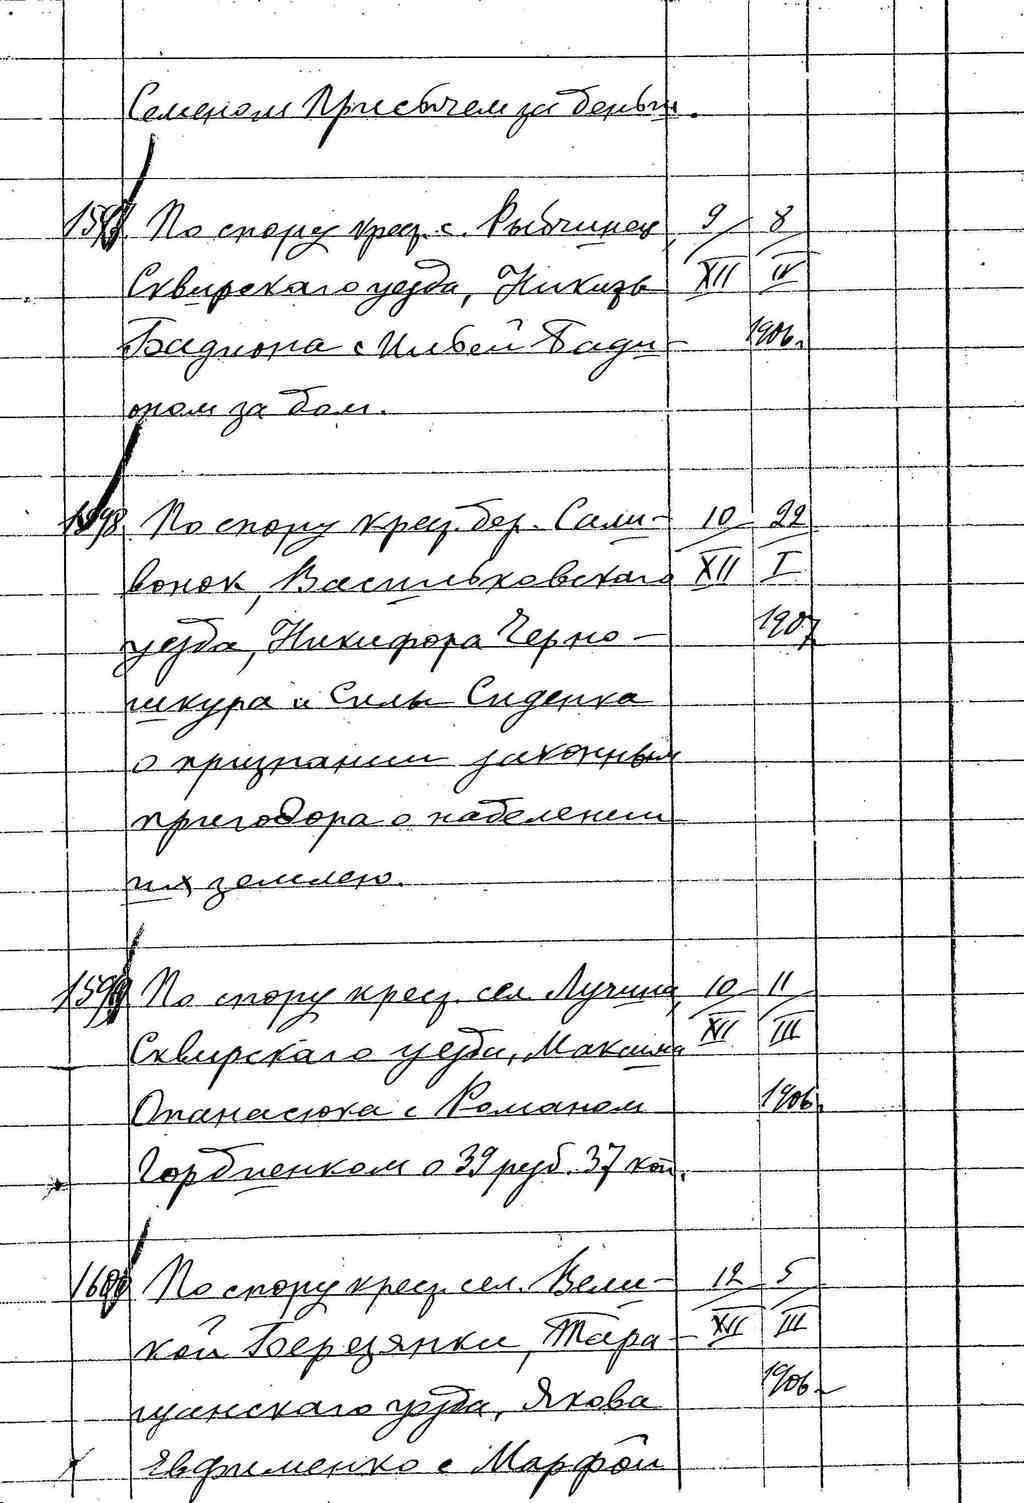 Семеном Присычем за деньги.
1597 По спору крест. с. Рыбчинец, 9 8
Сквирскаго уезда, Никиты XII IV
Бадиона с Ильей Бади- 1906 г.
оном за дом.
1598 По спору крест. дер. Сали- 10 22
вонок, Васильковскаго XII I
уезда, Никифора Черно- 1907
шкура и Силы Сиденка
о признании законным
приговора о наделении
их землею.
1599 По спору крест. сел. Лучина, 10 11
Сквирскаго уезда, Максима XII III
Опанасюка с Романом 1906 г.
Горбиенком о 39 руб. 37 коп.
1600 По спору крест. сел. Вели- 12 5
кой Березянки, Тара- XII III
щанскаго уезда, Якова 1906 г.
Евфименко с Марфой